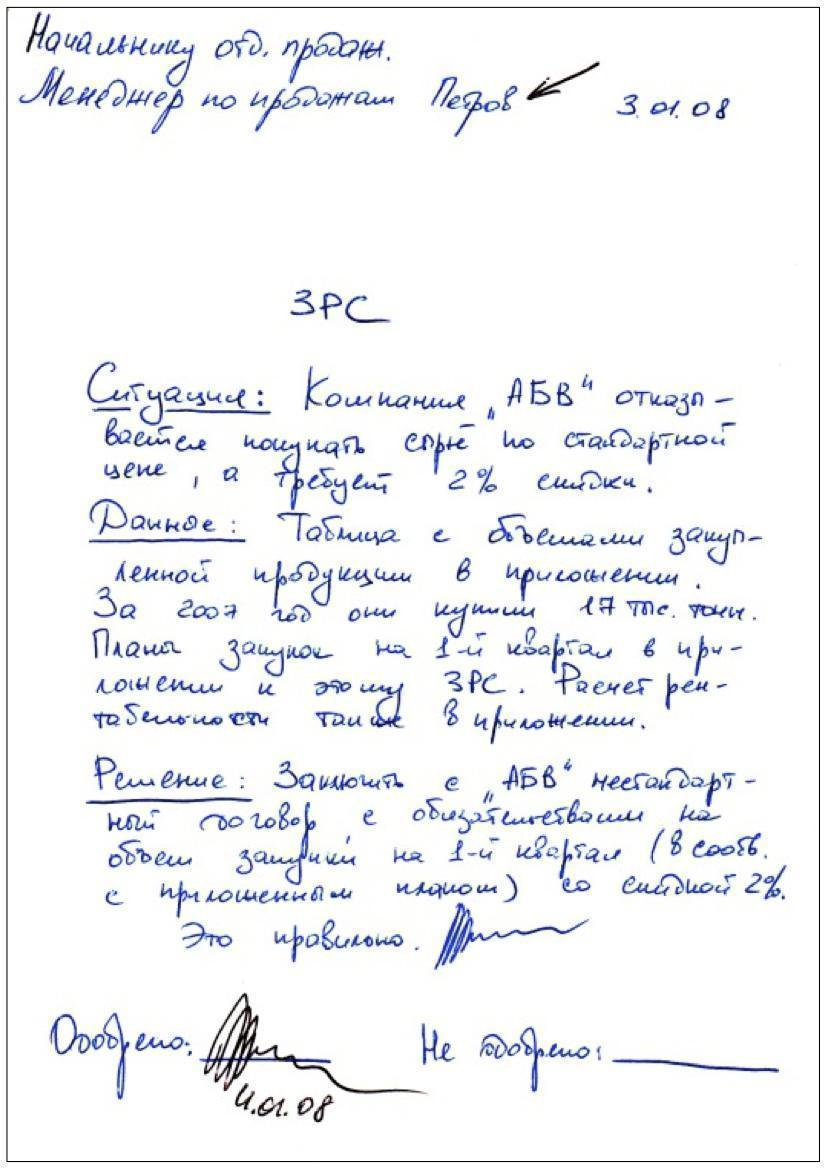 Начальнику отд. продаж.
Менеджер по продажам Петров 3.01.08
ЗРС
Ситуация: Компания „АБВ“ отказы-
вается покупать сырьё по стандартной
цене, а требует 2% скидки.
Данное: Таблица с объемами закуп-
ленной продукции в приложении.
За 2007 год они купили 17 тыс. тонн.
Планы закупок на 1-й квартал в при-
ложении к этому ЗРС. Расчет рен-
табельности также в приложении.
Решение: Заключить с „АБВ“ нестандарт-
ный договор, с обязательствами на
объем закупки на 1-й квартал (в соотв.
с приложенным планом) со скидкой 2%.
Это правильно.
Одобрено: Не одобрено:
4.01.08